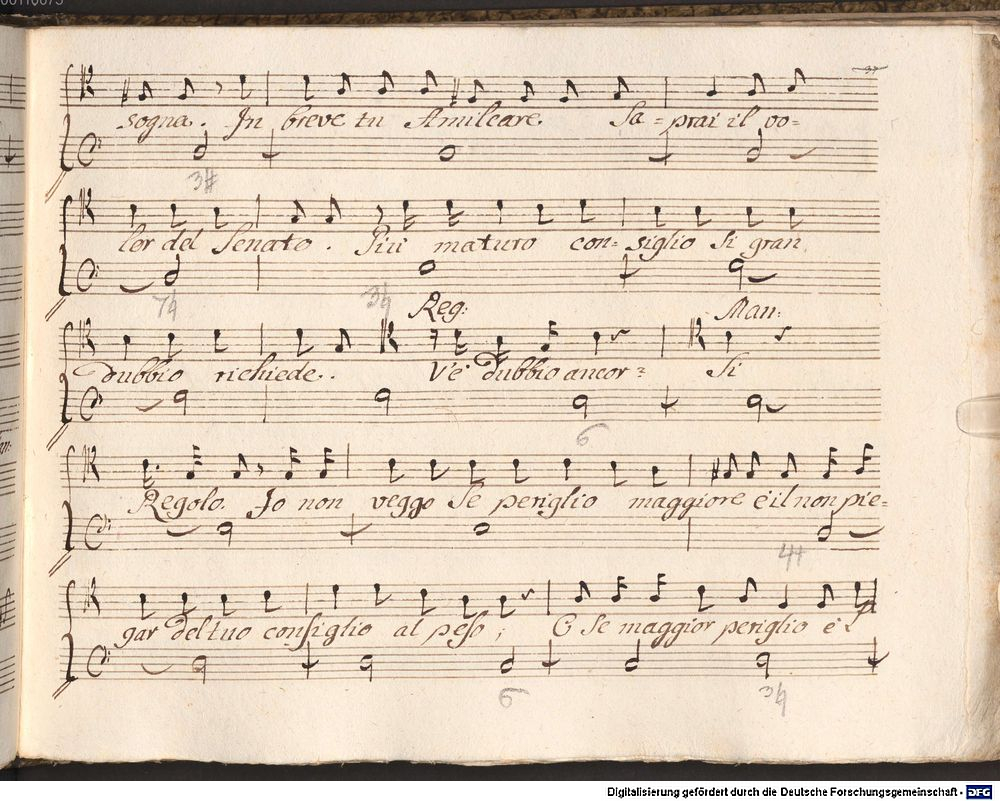 sogna. In breve tu Amilcare. Sa=prai il vo=
3#
ler del Senato. Più maturo con=siglio Si gran
7♮ 3♮
Reg: Man:
dubbio richiede. V'è dubbio ancor= Si
6
Regolo. Io non veggo Se periglio maggiore è il non pie=
4+
gar del tuo consiglio al peso; O Se maggior periglio è l
6 3♮
Digitalisierung gefördert durch die Deutsche Forschungsgemeinschaft - DFG